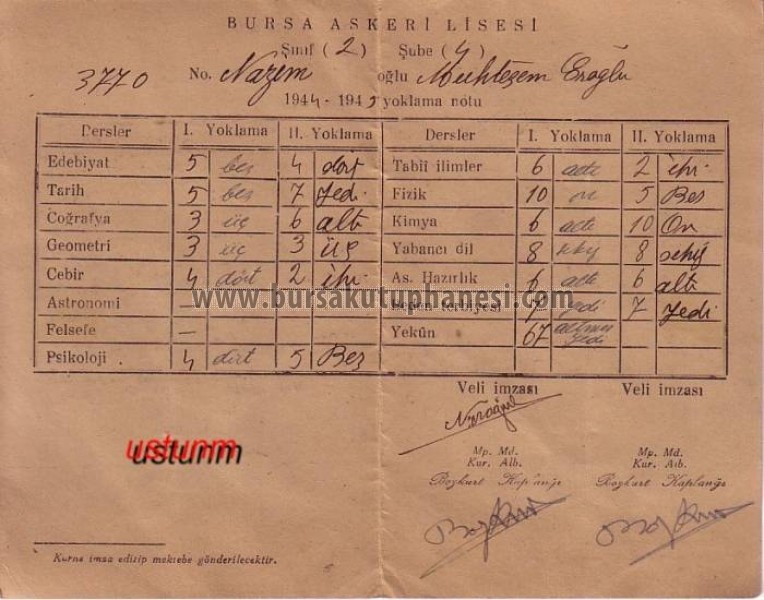 BURSA ASKERİ LİSESİ
Sınıf (2) Şube (4)
3770 No. Nazım oğlu Muhteşem Eroğlu
1944-1945 yoklama notu
Dersler I. Yoklama II. Yoklama Dersler I. Yoklama II. Yoklama
Edebiyat 5 beş 4 dört Tabiî ilimler 6 altı 2 iki
Tarih 5 beş 7 Yedi Fizik 10 on 5 Beş
Coğrafya 3 üç 6 altı Kimya 6 altı 10 On
Geometri 3 üç 3 üç Yabancı dil 8 sekiz 8 sekiz
Cebir 4 dört 2 iki As. Hazırlık 6 altı 6 altı
Astronomi — terbiyesi 7 yedi 7 Yedi
www.bursakutuphanesi.com
Felsefe — Yekûn 67 altmış yedi
Psikoloji 4 dört 5 Beş
Veli imzası Veli imzası
ustunm
ustunm
Mp. Md. Mp. Md.
Kur. Alb. Kur. Alb.
Bozkurt Kaplangı Bozkurt Kaplangı
Karne imza edilip mektebe gönderilecektir.